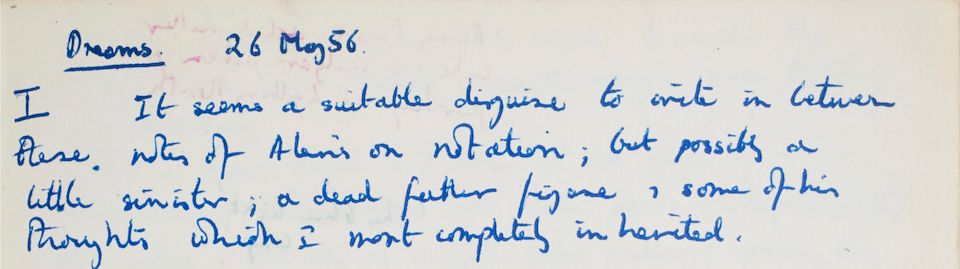 Dreams 26 May 56.
I It seems a suitable disguise to write in between
these notes of Alan's on notation; but possibly a
little sinister; a dead father figure & some of his
thoughts which I most completely inherited.